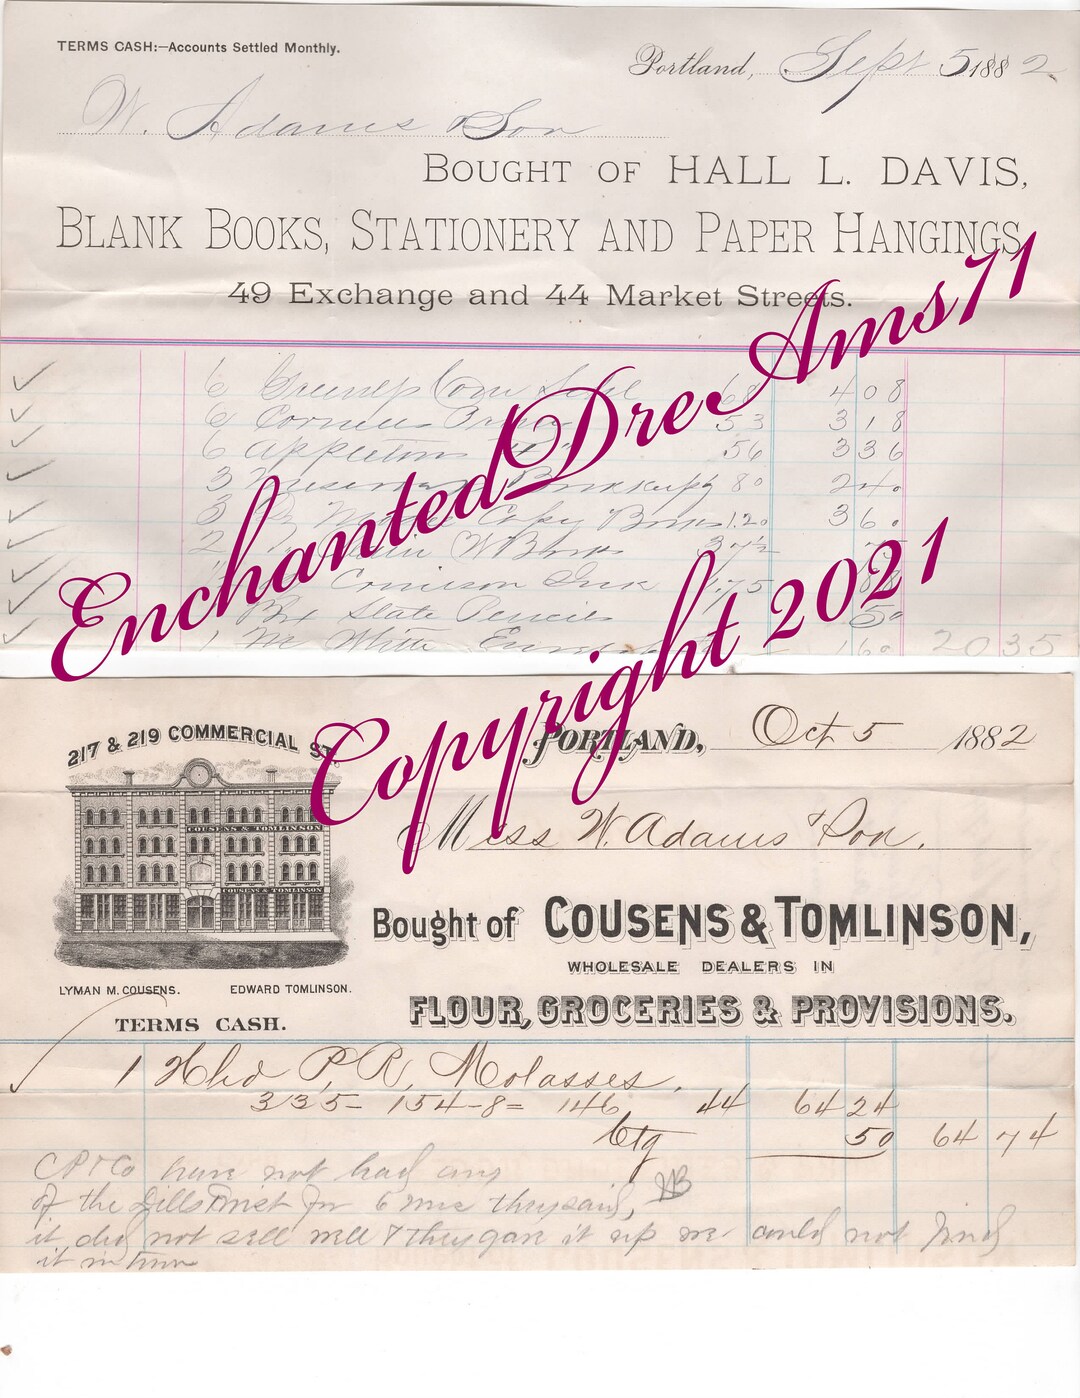 TERMS CASH:—Accounts Settled Monthly.
Portland, Sept 5 1882
W. Adams & Son
BOUGHT OF HALL L. DAVIS,
BLANK BOOKS, STATIONERY AND PAPER HANGINGS,
49 Exchange and 44 Market Streets.
6 68 4 08
6 53 3 18
6 Appletons 56 3 36
3 80 2 40
3 Copy Books 1.20 3 60
2 37½ 75
Ink 1.75 88
Bx Slate Pencils 50
1 M White 1 60 20 35
EnchantedDreAms71
Copyright 2021
217 & 219 COMMERCIAL ST.
COUSENS & TOMLINSON
COUSENS & TOMLINSON
LYMAN M. COUSENS. EDWARD TOMLINSON.
TERMS CASH.
PORTLAND, Oct 5 1882
Mess W. Adams & Son.
Bought of COUSENS & TOMLINSON,
WHOLESALE DEALERS IN
FLOUR, GROCERIES & PROVISIONS.
1 Hhd P. R. Molasses.
335 - 154 - 8 = 146 44 64 24
Ctg 50 64 74
CP & Co have not had any
of the for 6 mos they said,
it did not sell well & they gave it up we could not find
it in town